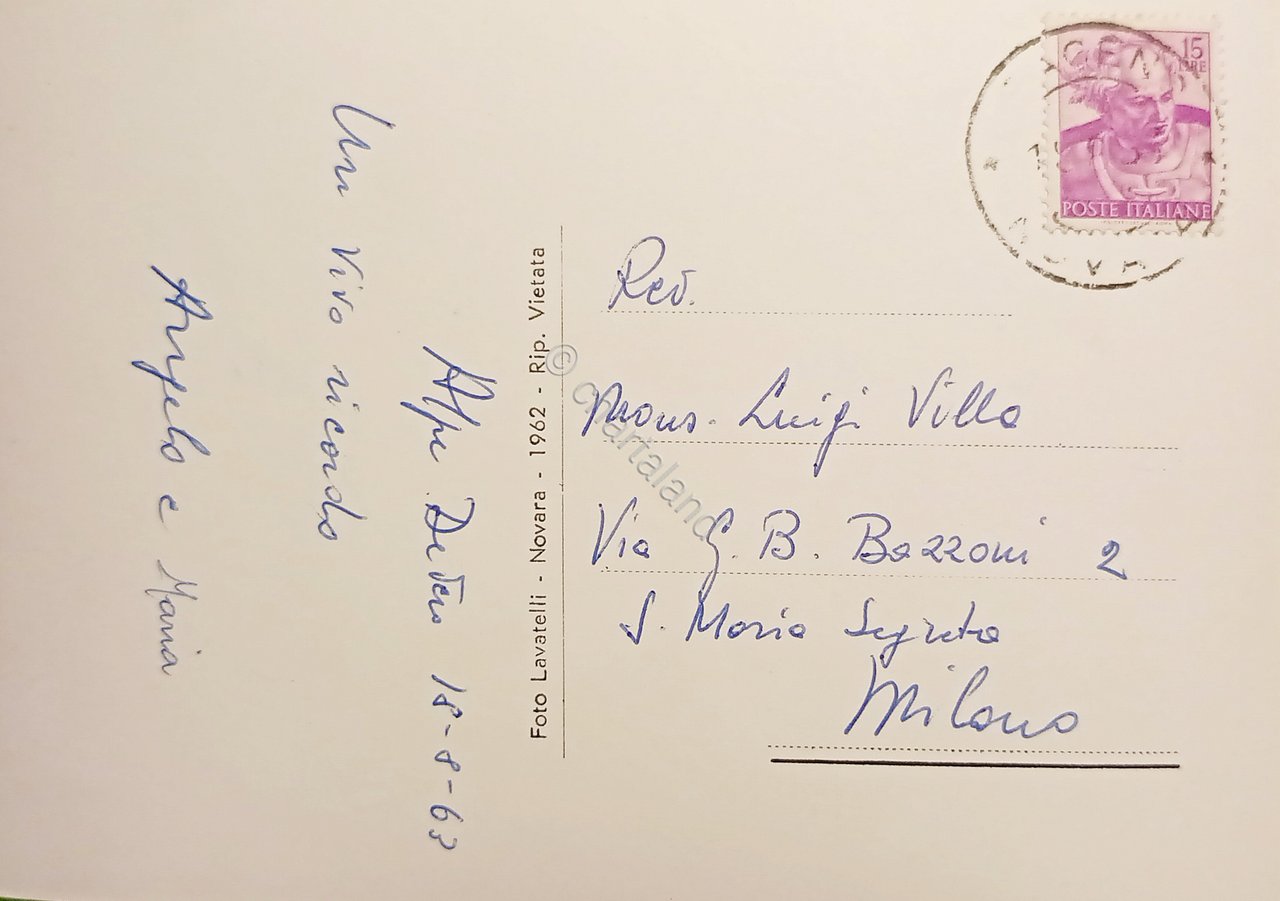 Alpe Devero 18-8-63
Un vivo ricordo
Angelo e Maria
Foto Lavatelli - Novara - 1962 - Rip. Vietata
15
LIRE
POSTE ITALIANE
Rev.
Mons. Luigi Villa
Via G. B. Bazzoni 2
S. Maria Segreta
Milano
© chartaland